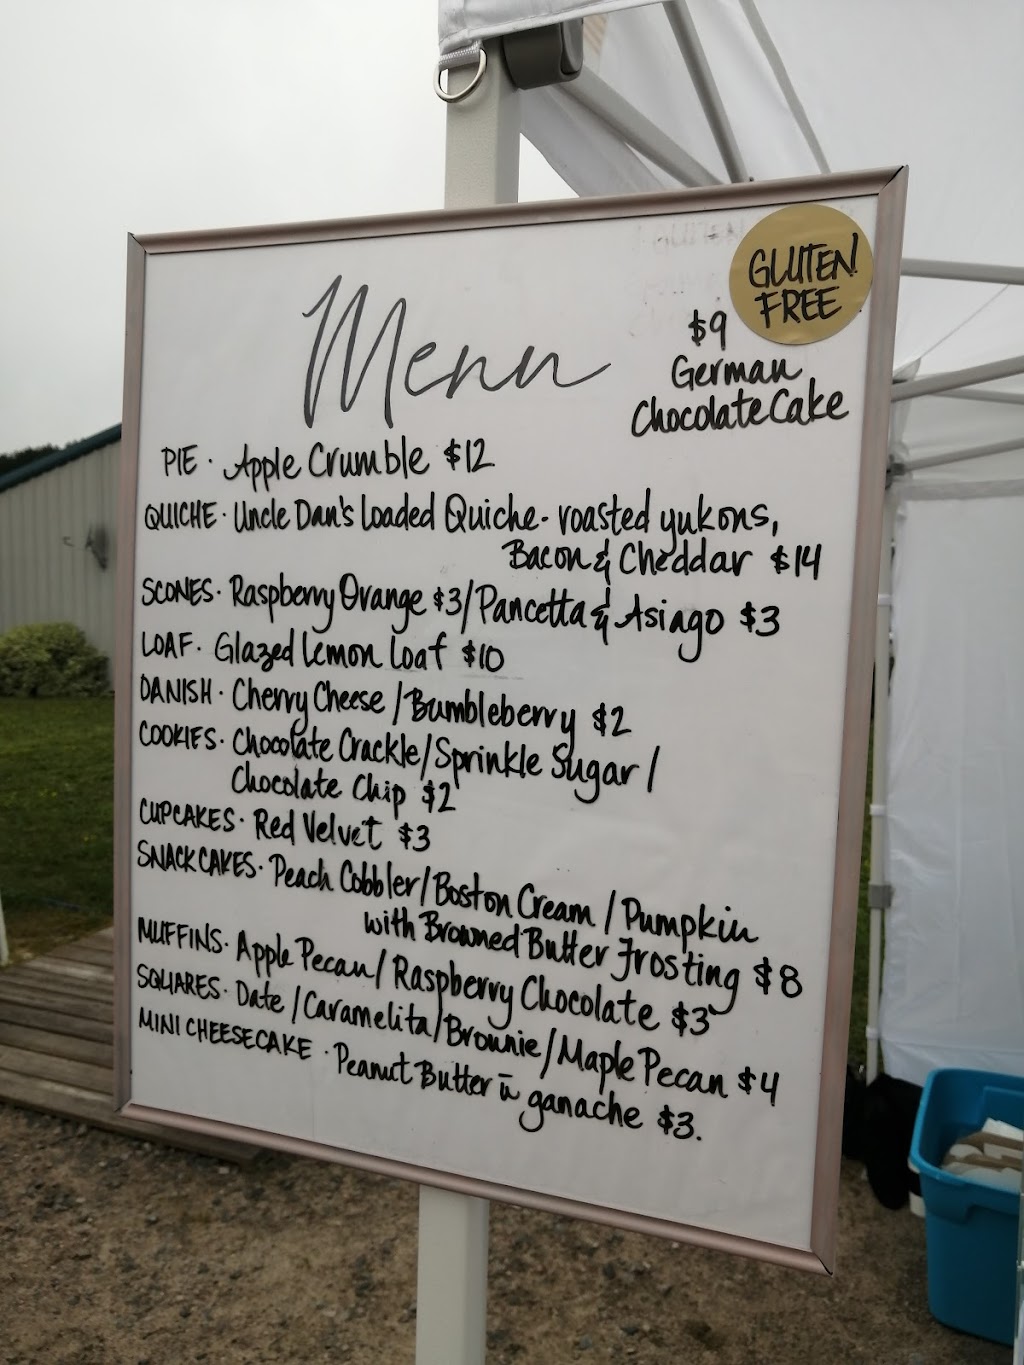 GLUTEN
FREE
$9
German
Chocolate Cake
Menu
PIE · Apple Crumble $12
QUICHE · Uncle Dan's Loaded Quiche - roasted yukons,
Bacon & Cheddar $14
SCONES · Raspberry Orange $3/Pancetta & Asiago $3
LOAF · Glazed Lemon Loaf $10
DANISH · Cherry Cheese / Bumbleberry $2
COOKIES · Chocolate Crackle/Sprinkle Sugar /
Chocolate Chip $2
CUPCAKES · Red Velvet $3
SNACK CAKES · Peach Cobbler/Boston Cream / Pumpkin
with Browned Butter Frosting $8
MUFFINS · Apple Pecan/Raspberry Chocolate $3
SQUARES · Date /Caramelita/Brownie/Maple Pecan $4
MINI CHEESECAKE · Peanut Butter w̄ ganache $3.